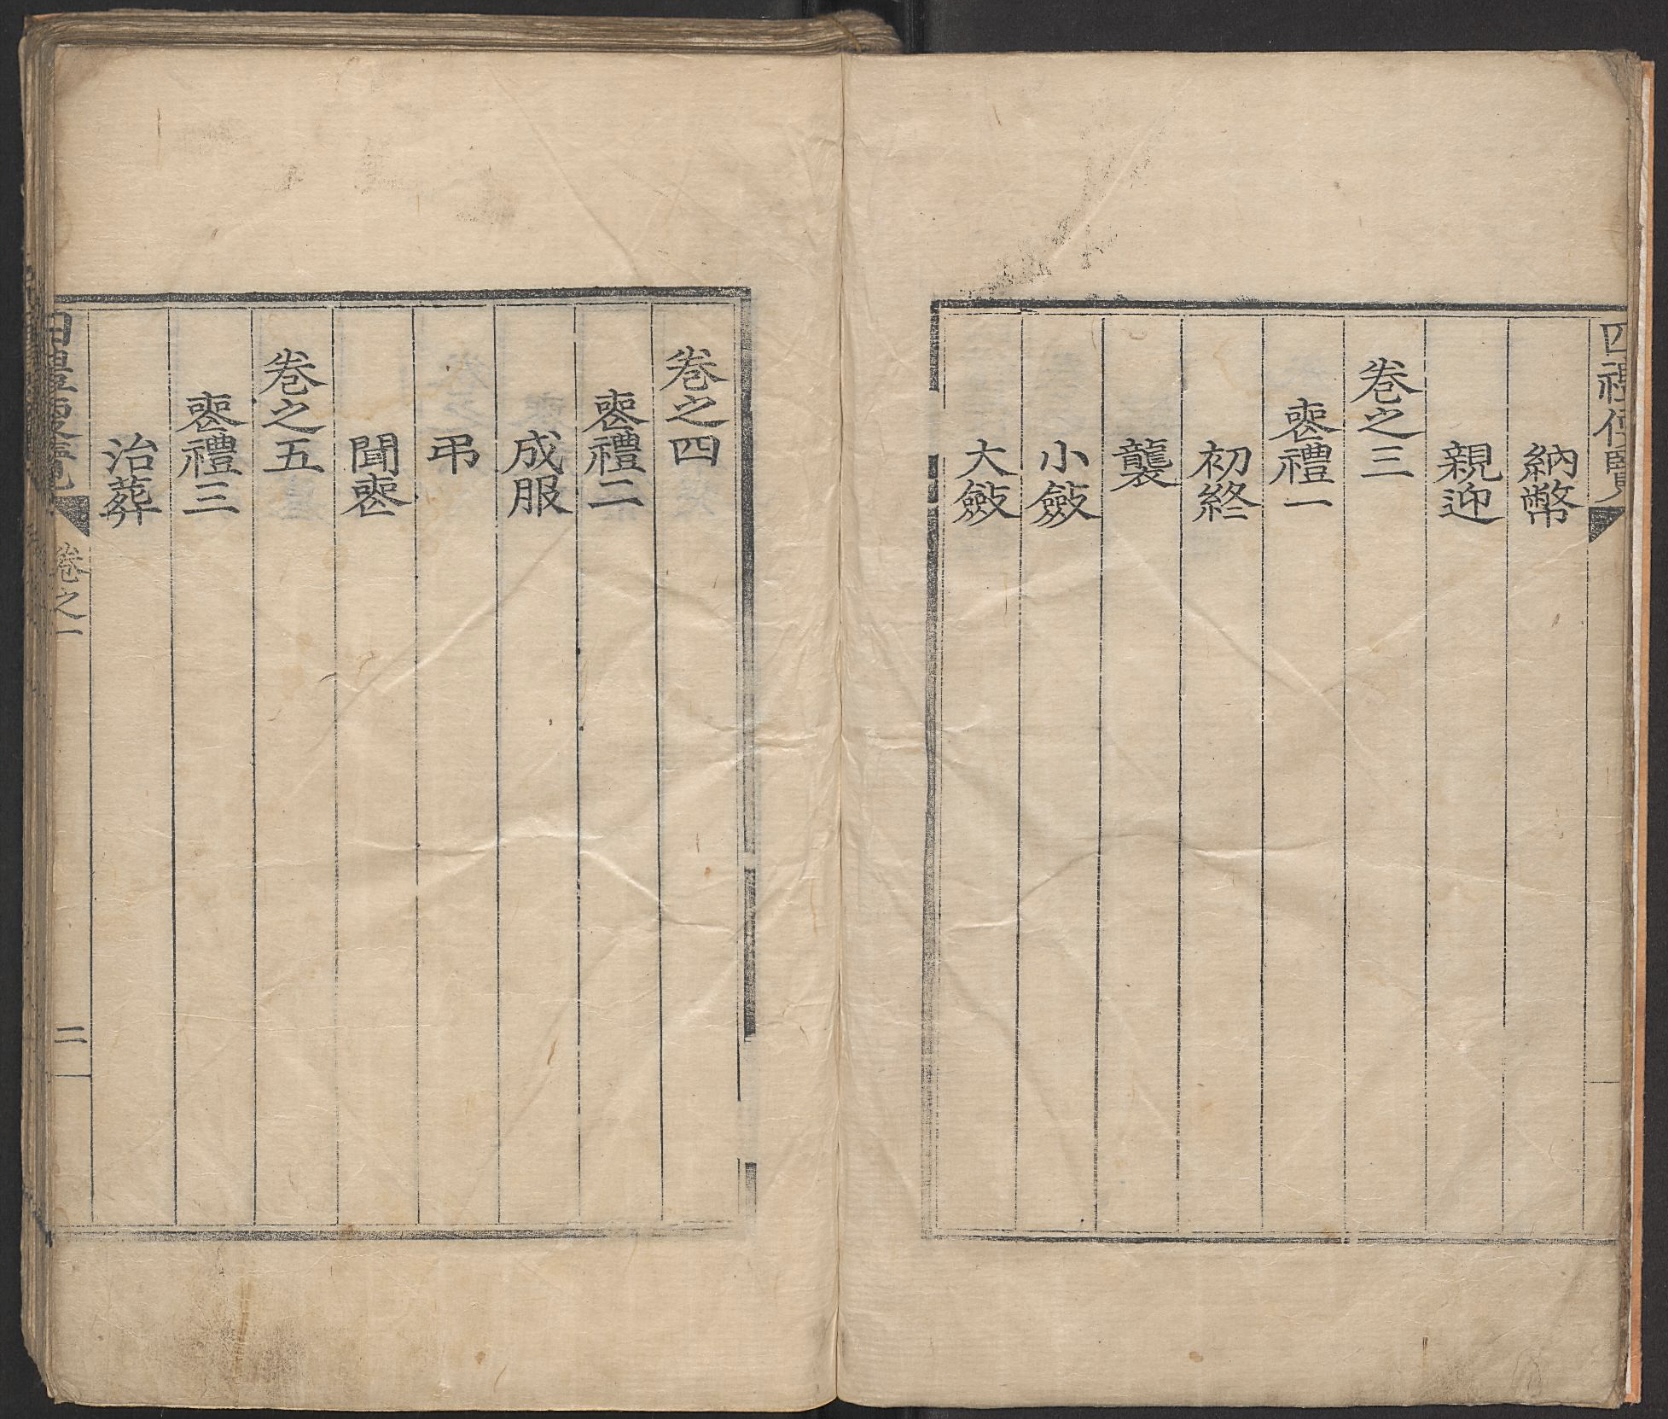 四禮便覽
納幣
親迎
卷之三
喪禮一
初終
襲
小斂
大斂
卷之四
喪禮二
成服
弔
聞喪
卷之五
喪禮三
治葬
四禮便覽 卷之一 二